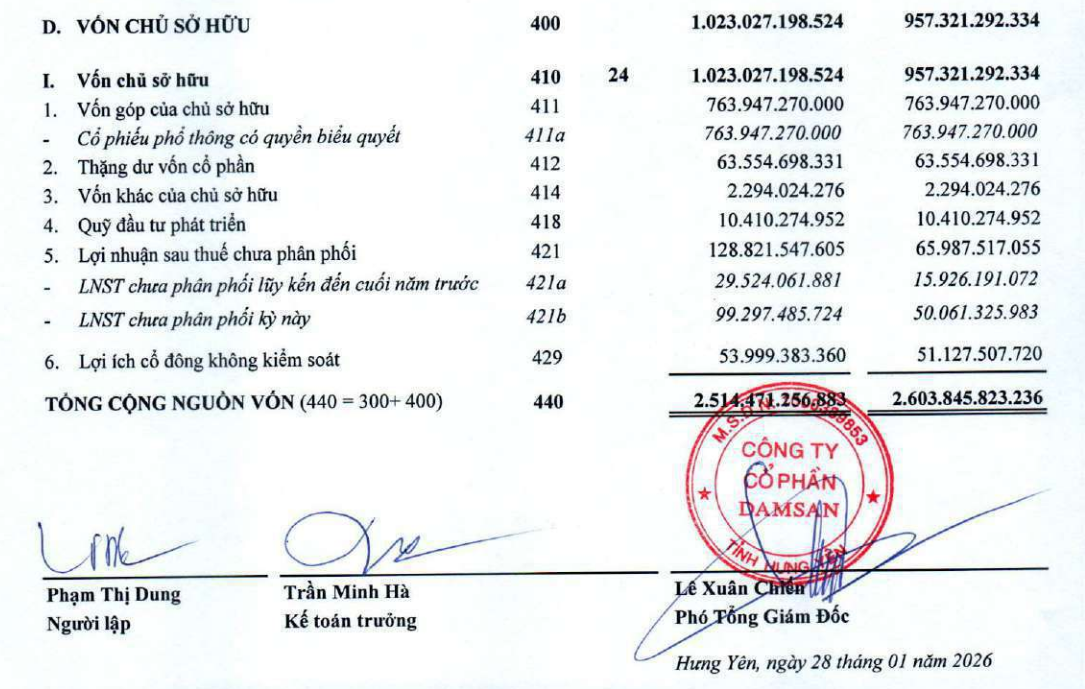 D. VỐN CHỦ SỞ HỮU 400 1.023.027.198.524 957.321.292.334
I. Vốn chủ sở hữu 410 24 1.023.027.198.524 957.321.292.334
1. Vốn góp của chủ sở hữu 411 763.947.270.000 763.947.270.000
- Cổ phiếu phổ thông có quyền biểu quyết 411a 763.947.270.000 763.947.270.000
2. Thặng dư vốn cổ phần 412 63.554.698.331 63.554.698.331
3. Vốn khác của chủ sở hữu 414 2.294.024.276 2.294.024.276
4. Quỹ đầu tư phát triển 418 10.410.274.952 10.410.274.952
5. Lợi nhuận sau thuế chưa phân phối 421 128.821.547.605 65.987.517.055
- LNST chưa phân phối lũy kến đến cuối năm trước 421a 29.524.061.881 15.926.191.072
- LNST chưa phân phối kỳ này 421b 99.297.485.724 50.061.325.983
6. Lợi ích cổ đông không kiểm soát 429 53.999.383.360 51.127.507.720
TỔNG CỘNG NGUỒN VỐN (440 = 300+ 400) 440 2.514.471.256.883 2.603.845.823.236
M.S.D.N:
CÔNG TY
CỔ PHẦN
DAMSAN
TỈNH HƯNG YÊN
Phạm Thị Dung Trần Minh Hà Lê Xuân Chiến
Người lập Kế toán trưởng Phó Tổng Giám Đốc
Hưng Yên, ngày 28 tháng 01 năm 2026